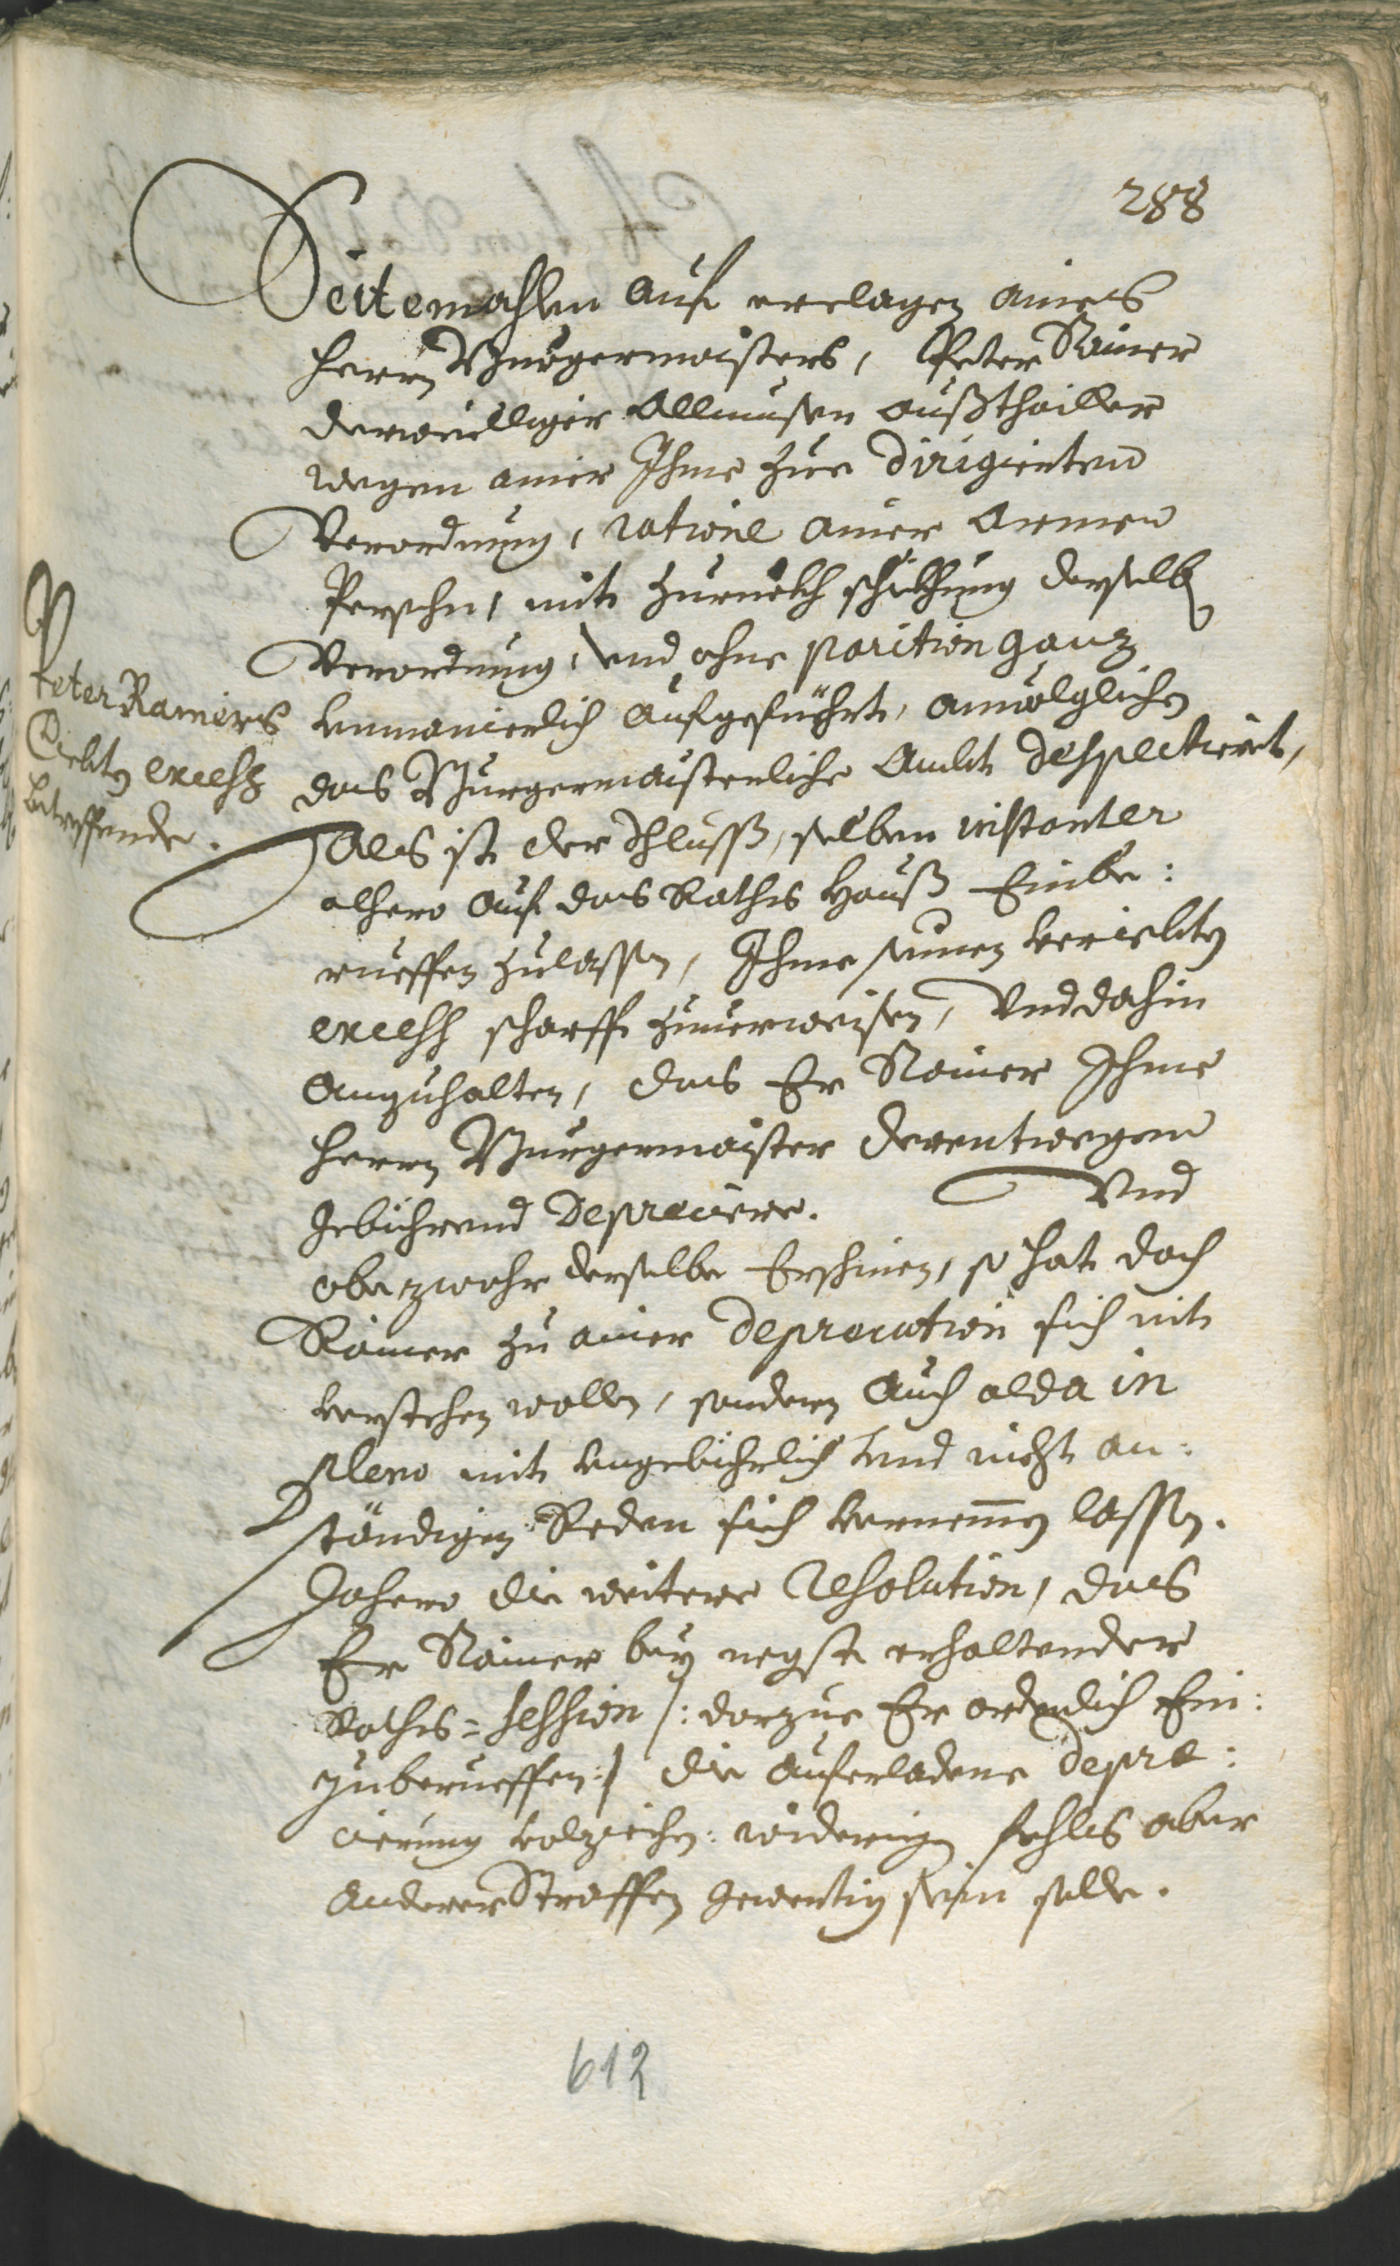 288
Seitemahlen auf erclagen aines
Herrn Burgermaisters, Peter Rainer
derweilliger Allmusen außthailler
wegen ainer Ihme zue dirigierten
Verordnung, ratione ainer Armen
Persohn, mit zurückh schickhung derselben
Verordnung, vnd ohne parition ganz
vnmanierlich aufgeführt,
das Burgermaisterliche Ambt despectiert,
Peter Rainers
excess
betreffende.
Als ist der Schluss, selben instanter
alhero auf das Rathshauß Einbe:
rueffen zulassen, Ihme seinen veriebten
excess scharff zuuerweisen, Vnd dahin
Anzuhalten, das Er Rainer Ihme
Herrn Burgermaister derentwegen
gebührend depreciere. Vnd
obezwohr derselbe Erschinen, so hat doch
Rainer zu ainer deprecation sich nit
verstehen wollen, sondern Auch alda in
pleno mit vngebührlich vnd nicht an:
ständigen Reden sich vernemmen lassen.
Dahero die weitere Resolution, das
Er Rainer bey negst erhaltender
Raths=Session /: darzue Er ordenlich Ein:
zuberueffen :/ die auferladene depre:
cierung volziehen: widerigen fahls aber
Anderer Straffen gewertig sein solle.
612